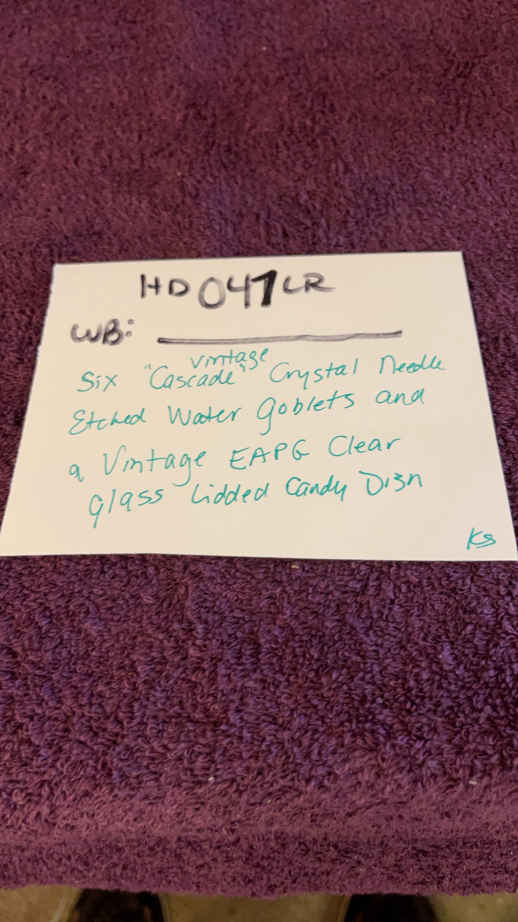 HD 047 LR
WB:
vintage
Six "Cascade" Crystal Needle
Etched Water Goblets and
a Vintage EAPG Clear
glass Lidded Candy Dish
KS